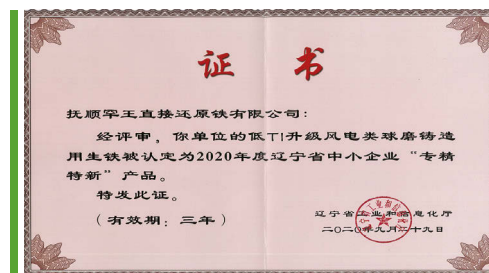 证书
抚顺罕王直接还原铁有限公司：
经评审，你单位的低TI升级风电类球磨铸造
用生铁被认定为2020年度辽宁省中小企业“专精
特新”产品。
特发此证。
（有效期：三年）
辽宁省工业和信息化厅
二〇二〇年九月二十九日